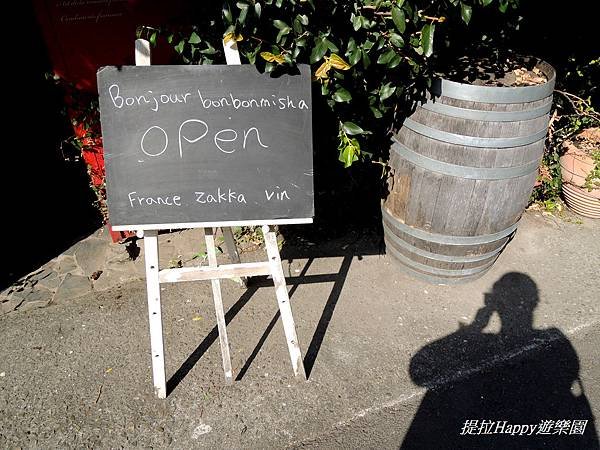 Bonjour bonbonmisha
OPEN
France zakka vin
提拉Happy遊樂園